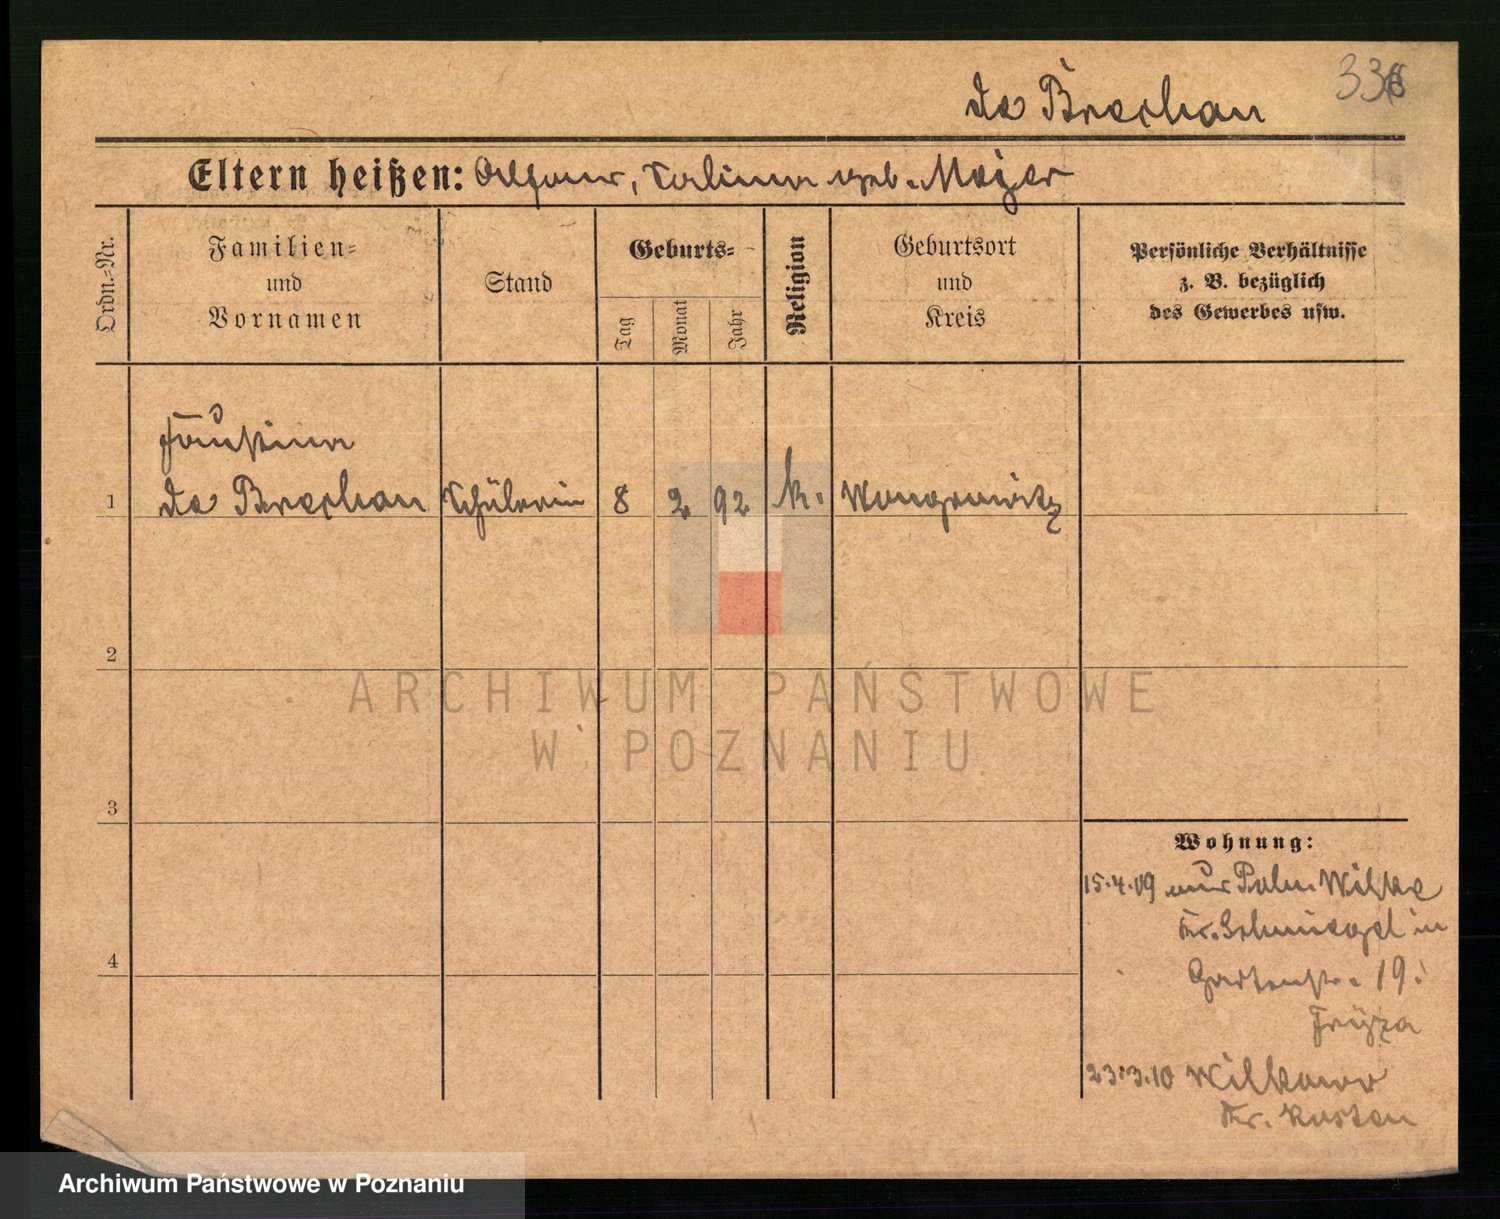 336
de Brechan
Eltern heißen: Alfons, Salima geb. Mejer
Ordn.=Nr.
Familien=
und
Vornamen
Stand
Geburts=
Tag
Monat
Jahr
Religion
Geburtsort
und
Kreis
Persönliche Verhältnisse
z. B. bezüglich
des Gewerbes usw.
Faustina
1 de Brechan Schülerin 8 2 92 k. Wongrowitz
2
ARCHIWUM PAŃSTWOWE
W POZNANIU
3
Wohnung:
15.4.09 Wilke
Kr. Schmiegel in
Gartenstr. 19.
4
23.3.10 Wilkowo
Kr. Kosten
Archiwum Państwowe w Poznaniu